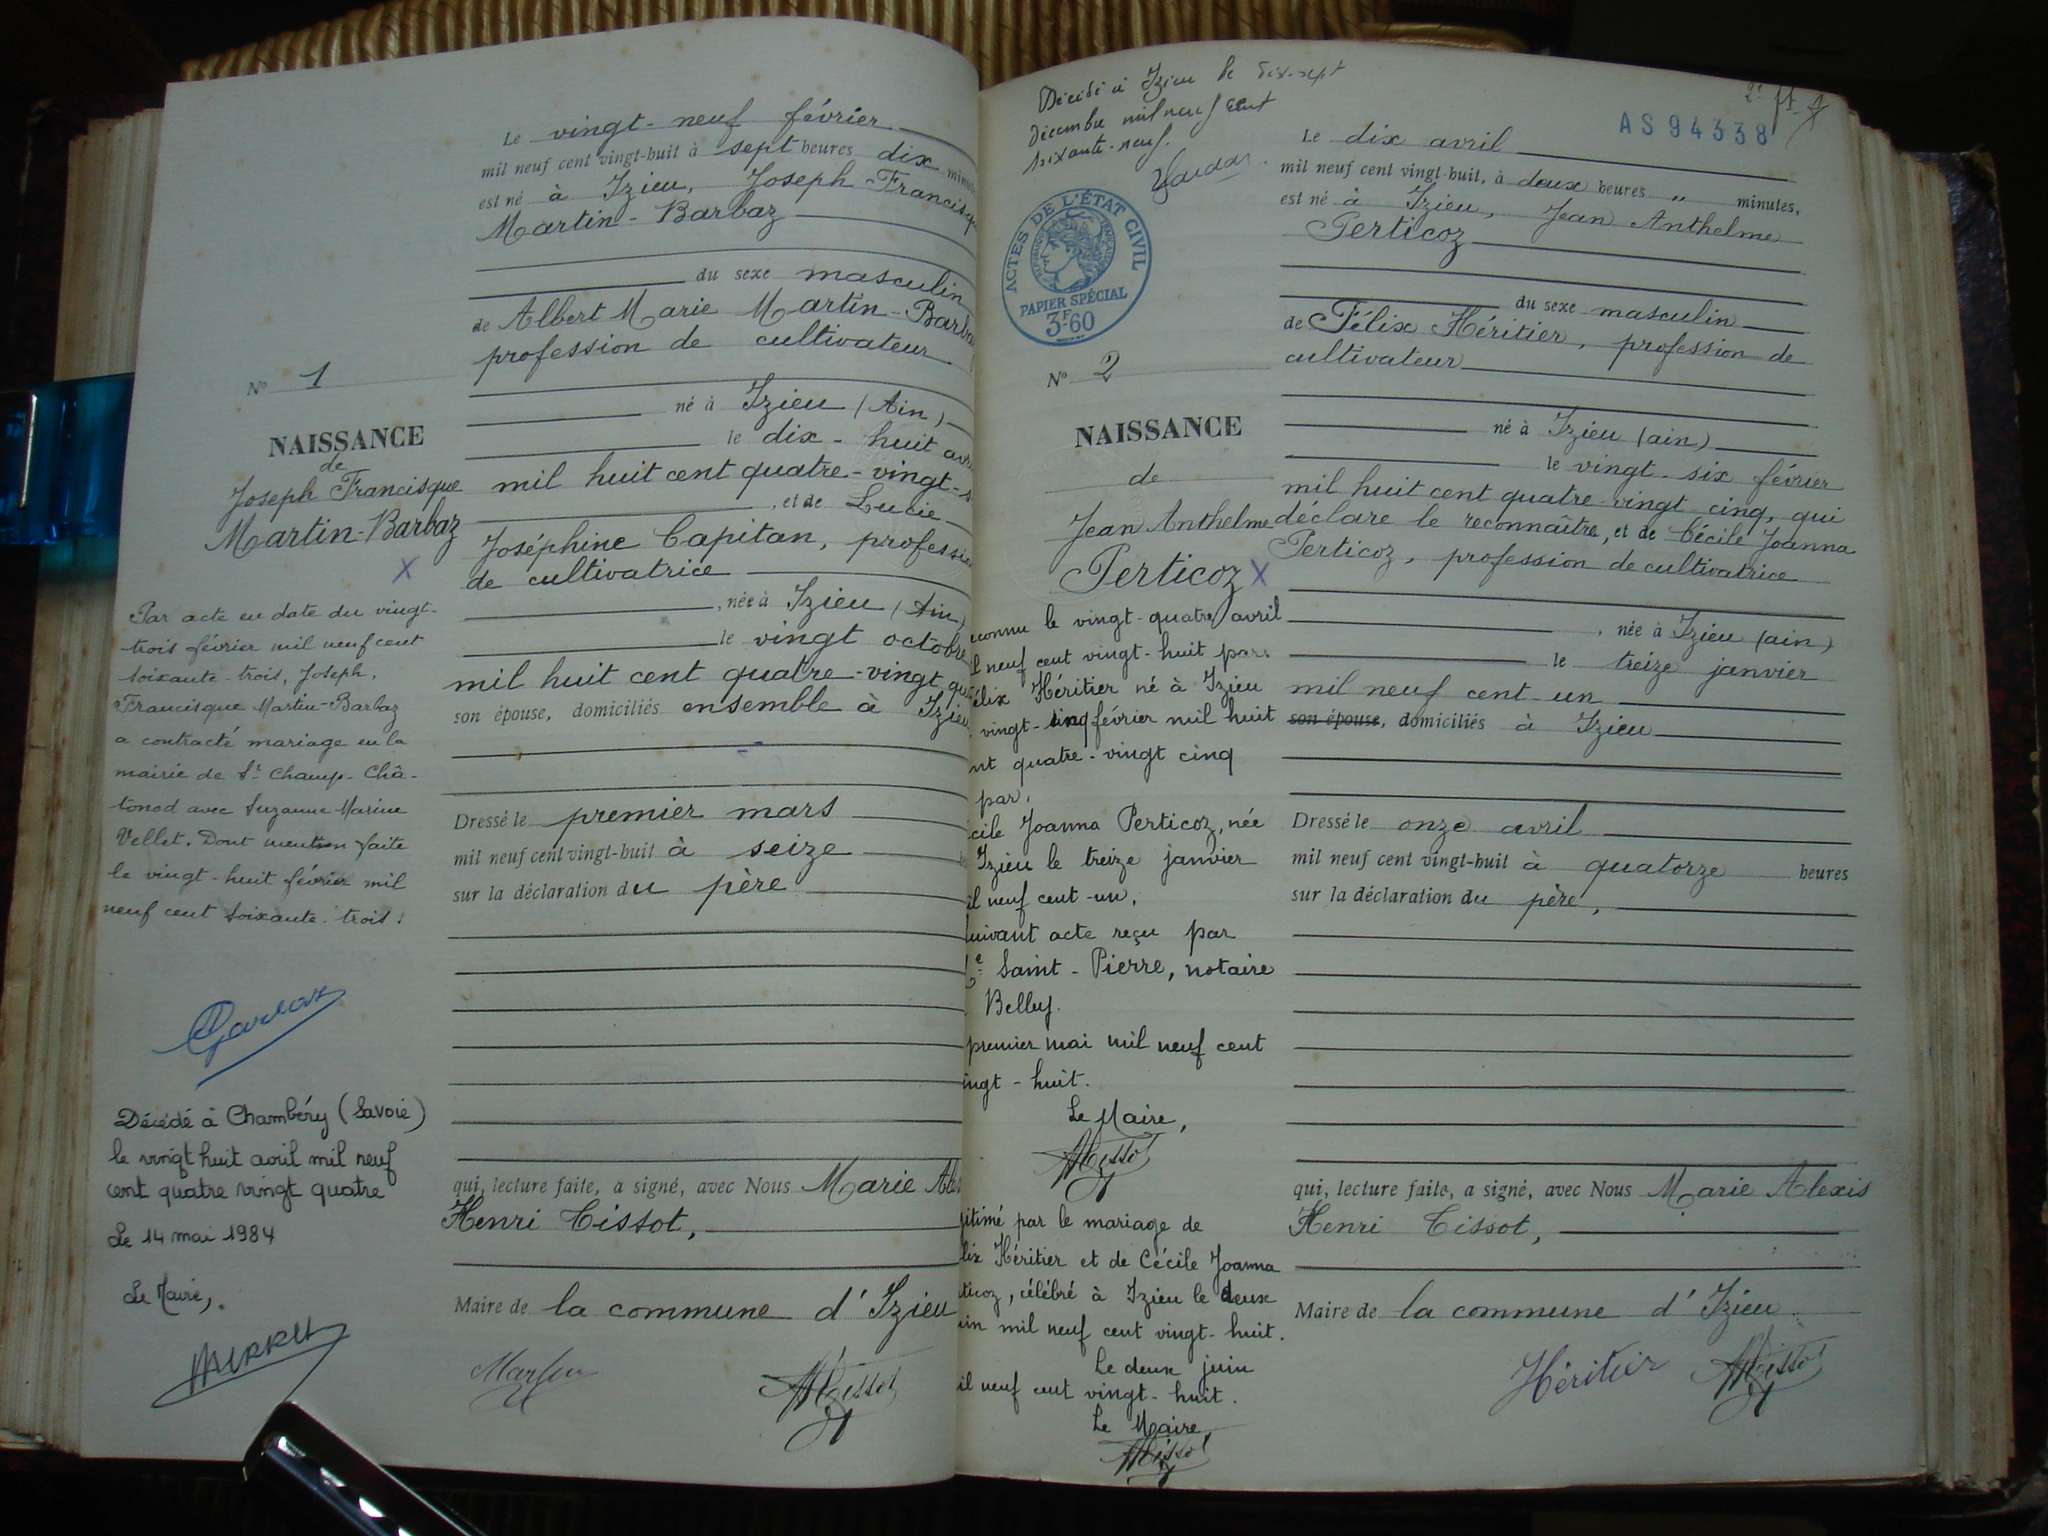 Le vingt-neuf février
mil neuf cent vingt-huit à sept heures dix
est né à Izieu, Joseph Francisque
Martin-Barbaz
du sexe masculin
de Albert Marie Martin-Barbaz
profession de cultivateur
né à Izieu (Ain)
le dix-huit
mil huit cent quatre-vingt-
, et de Lucie
Joséphine Capitan,
de cultivatrice
, née à Izieu (Ain)
le vingt octobre
mil huit cent quatre-vingt
son épouse, domiciliés ensemble à Izieu
Dressé le premier mars
mil neuf cent vingt-huit à seize
sur la déclaration du père
qui, lecture faite, a signé, avec Nous Marie
Henri Tissot,
Maire de la commune d'Izieu
N° 1
NAISSANCE
de
Joseph Francisque
Martin-Barbaz
X
Par acte en date du vingt-
trois février mil neuf cent
soixante-trois, Joseph,
Francisque Martin-Barbaz
a contracté mariage en la
mairie de St Champ-Châ-
tonod avec Suzanne Marine
Vellet. Dont mention faite
le vingt-huit février mil
neuf cent soixante-trois.
Décédé à Chambéry (Savoie)
le vingt huit avril mil neuf
cent quatre vingt quatre
Le 14 mai 1984
Le Maire,
Décédé à Izieu le dix-sept
décembre mil neuf cent
soixante-neuf.
ACTES DE L'ÉTAT CIVIL
PAPIER SPÉCIAL
3F60
N° 2
NAISSANCE
de
Jean Anthelme
Perticoz X
connu le vingt-quatre avril
il neuf cent vingt-huit par
élix Héritier né à Izieu
vingt-cinq février mil huit
nt quatre-vingt cinq
par,
cile Joanna Perticoz, née
Izieu le treize janvier
il neuf cent-un,
uivant acte reçu par
e Saint-Pierre, notaire
Belley.
premier mai mil neuf cent
ingt-huit.
Le Maire,
Tissot
gitimé par le mariage de
lix Héritier et de Cécile Joanna
ticoz, célébré à Izieu le deux
uin mil neuf cent vingt-huit.
Le deux juin
il neuf cent vingt-huit.
Le Maire,
Tissot
AS94338
Le dix avril
mil neuf cent vingt-huit, à deux heures " minutes,
est né à Izieu, Jean Anthelme
Perticoz
du sexe masculin
de Félix Héritier, profession de
cultivateur
né à Izieu (ain)
le vingt-six février
mil huit cent quatre-vingt cinq, qui
déclare le reconnaître, et de Cécile Joanna
Perticoz, profession de cultivatrice
, née à Izieu (ain)
le treize janvier
mil neuf cent-un
son épouse, domiciliés à Izieu
Dressé le onze avril
mil neuf cent vingt-huit à quatorze heures
sur la déclaration du père,
qui, lecture faite, a signé, avec Nous Marie Alexis
Henri Tissot,
Maire de la commune d'Izieu
Héritier Tissot